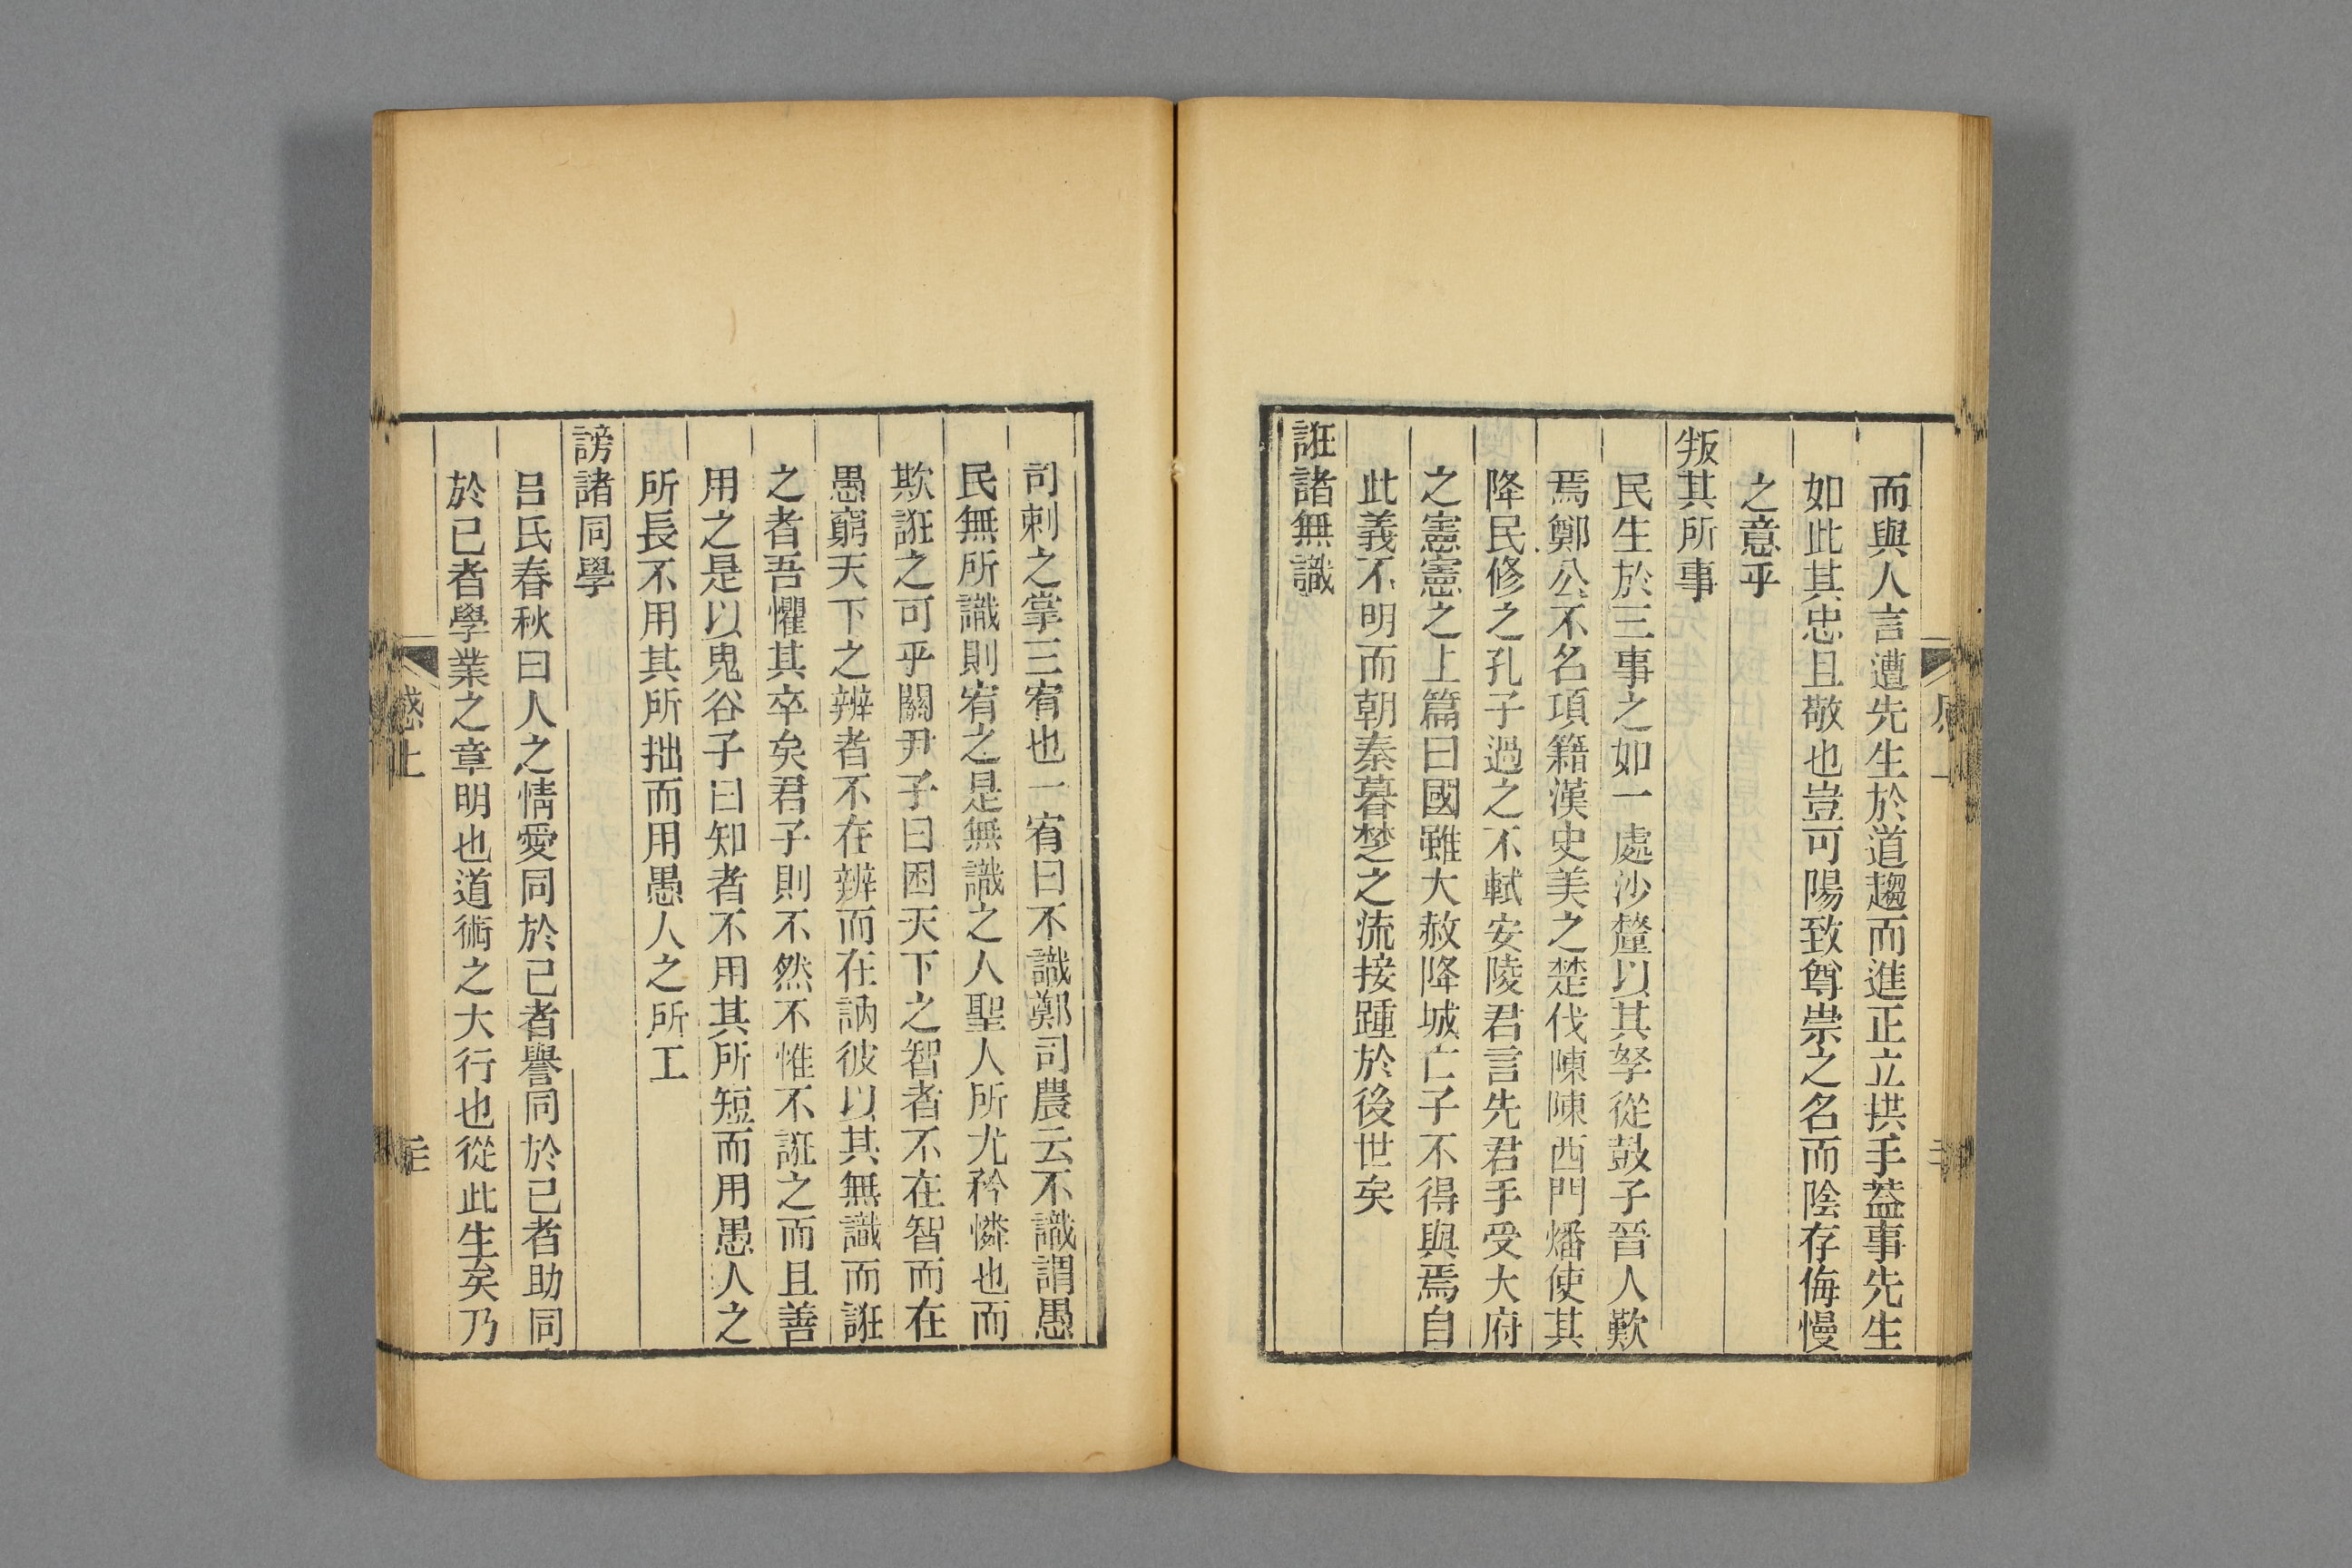 而與人言遭先生於道趨而進正立拱手葢事先生
如此其忠且敬也豈可陽致尊崇之名而陰存侮慢
之意乎
叛其所事
民生於三事之如一處沙釐以其孥從鼓子晉人歎
焉鄭公不名項籍漢史美之楚伐陳陳西門燔使其
降民修之孔子過之不軾安陵君言先君手受大府
之憲憲之上篇曰國雖大赦降城亡子不得與焉自
此義不明而朝秦暮楚之流接踵於後世矣
誑諸無識
司刺之掌三宥也一宥曰不識鄭司農云不識謂愚
民無所識則宥之是無識之人聖人所尤矜憐也而
欺誑之可乎關尹子曰困天下之智者不在智而在
愚窮天下之辨者不在辨而在訥彼以其無識而誑
之者吾懼其卒矣君子則不然不惟不誑之而且善
用之是以鬼谷子曰知者不用其所短而用愚人之
所長不用其所拙而用愚人之所工
謗諸同學
呂氏春秋曰人之情愛同於己者譽同於己者助同
於己者學業之章明也道術之大行也從此生矣乃
感上